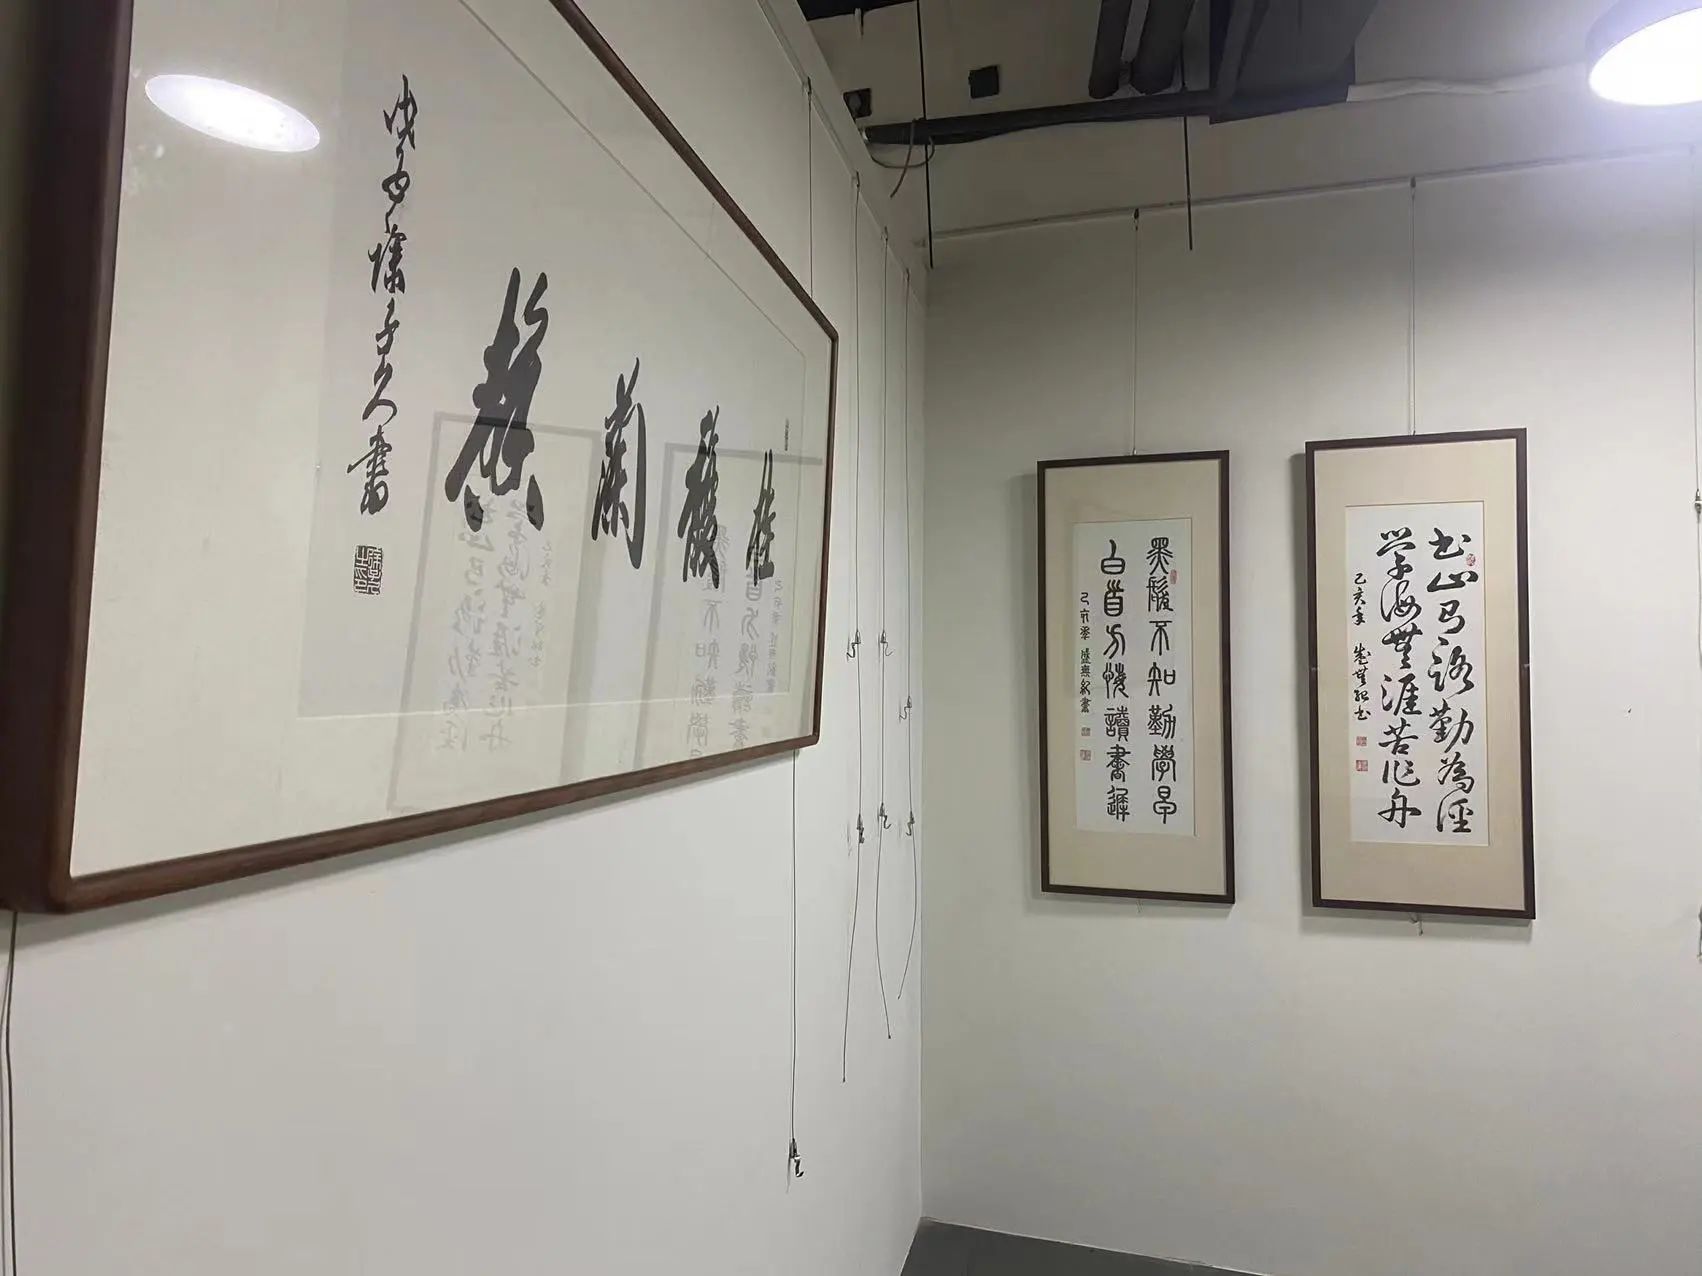 桂馥蘭馨
書
黑髮不知勤學早
白首方悔讀書遲
己亥年
書山有路勤為徑
学海無涯苦作舟
己亥年